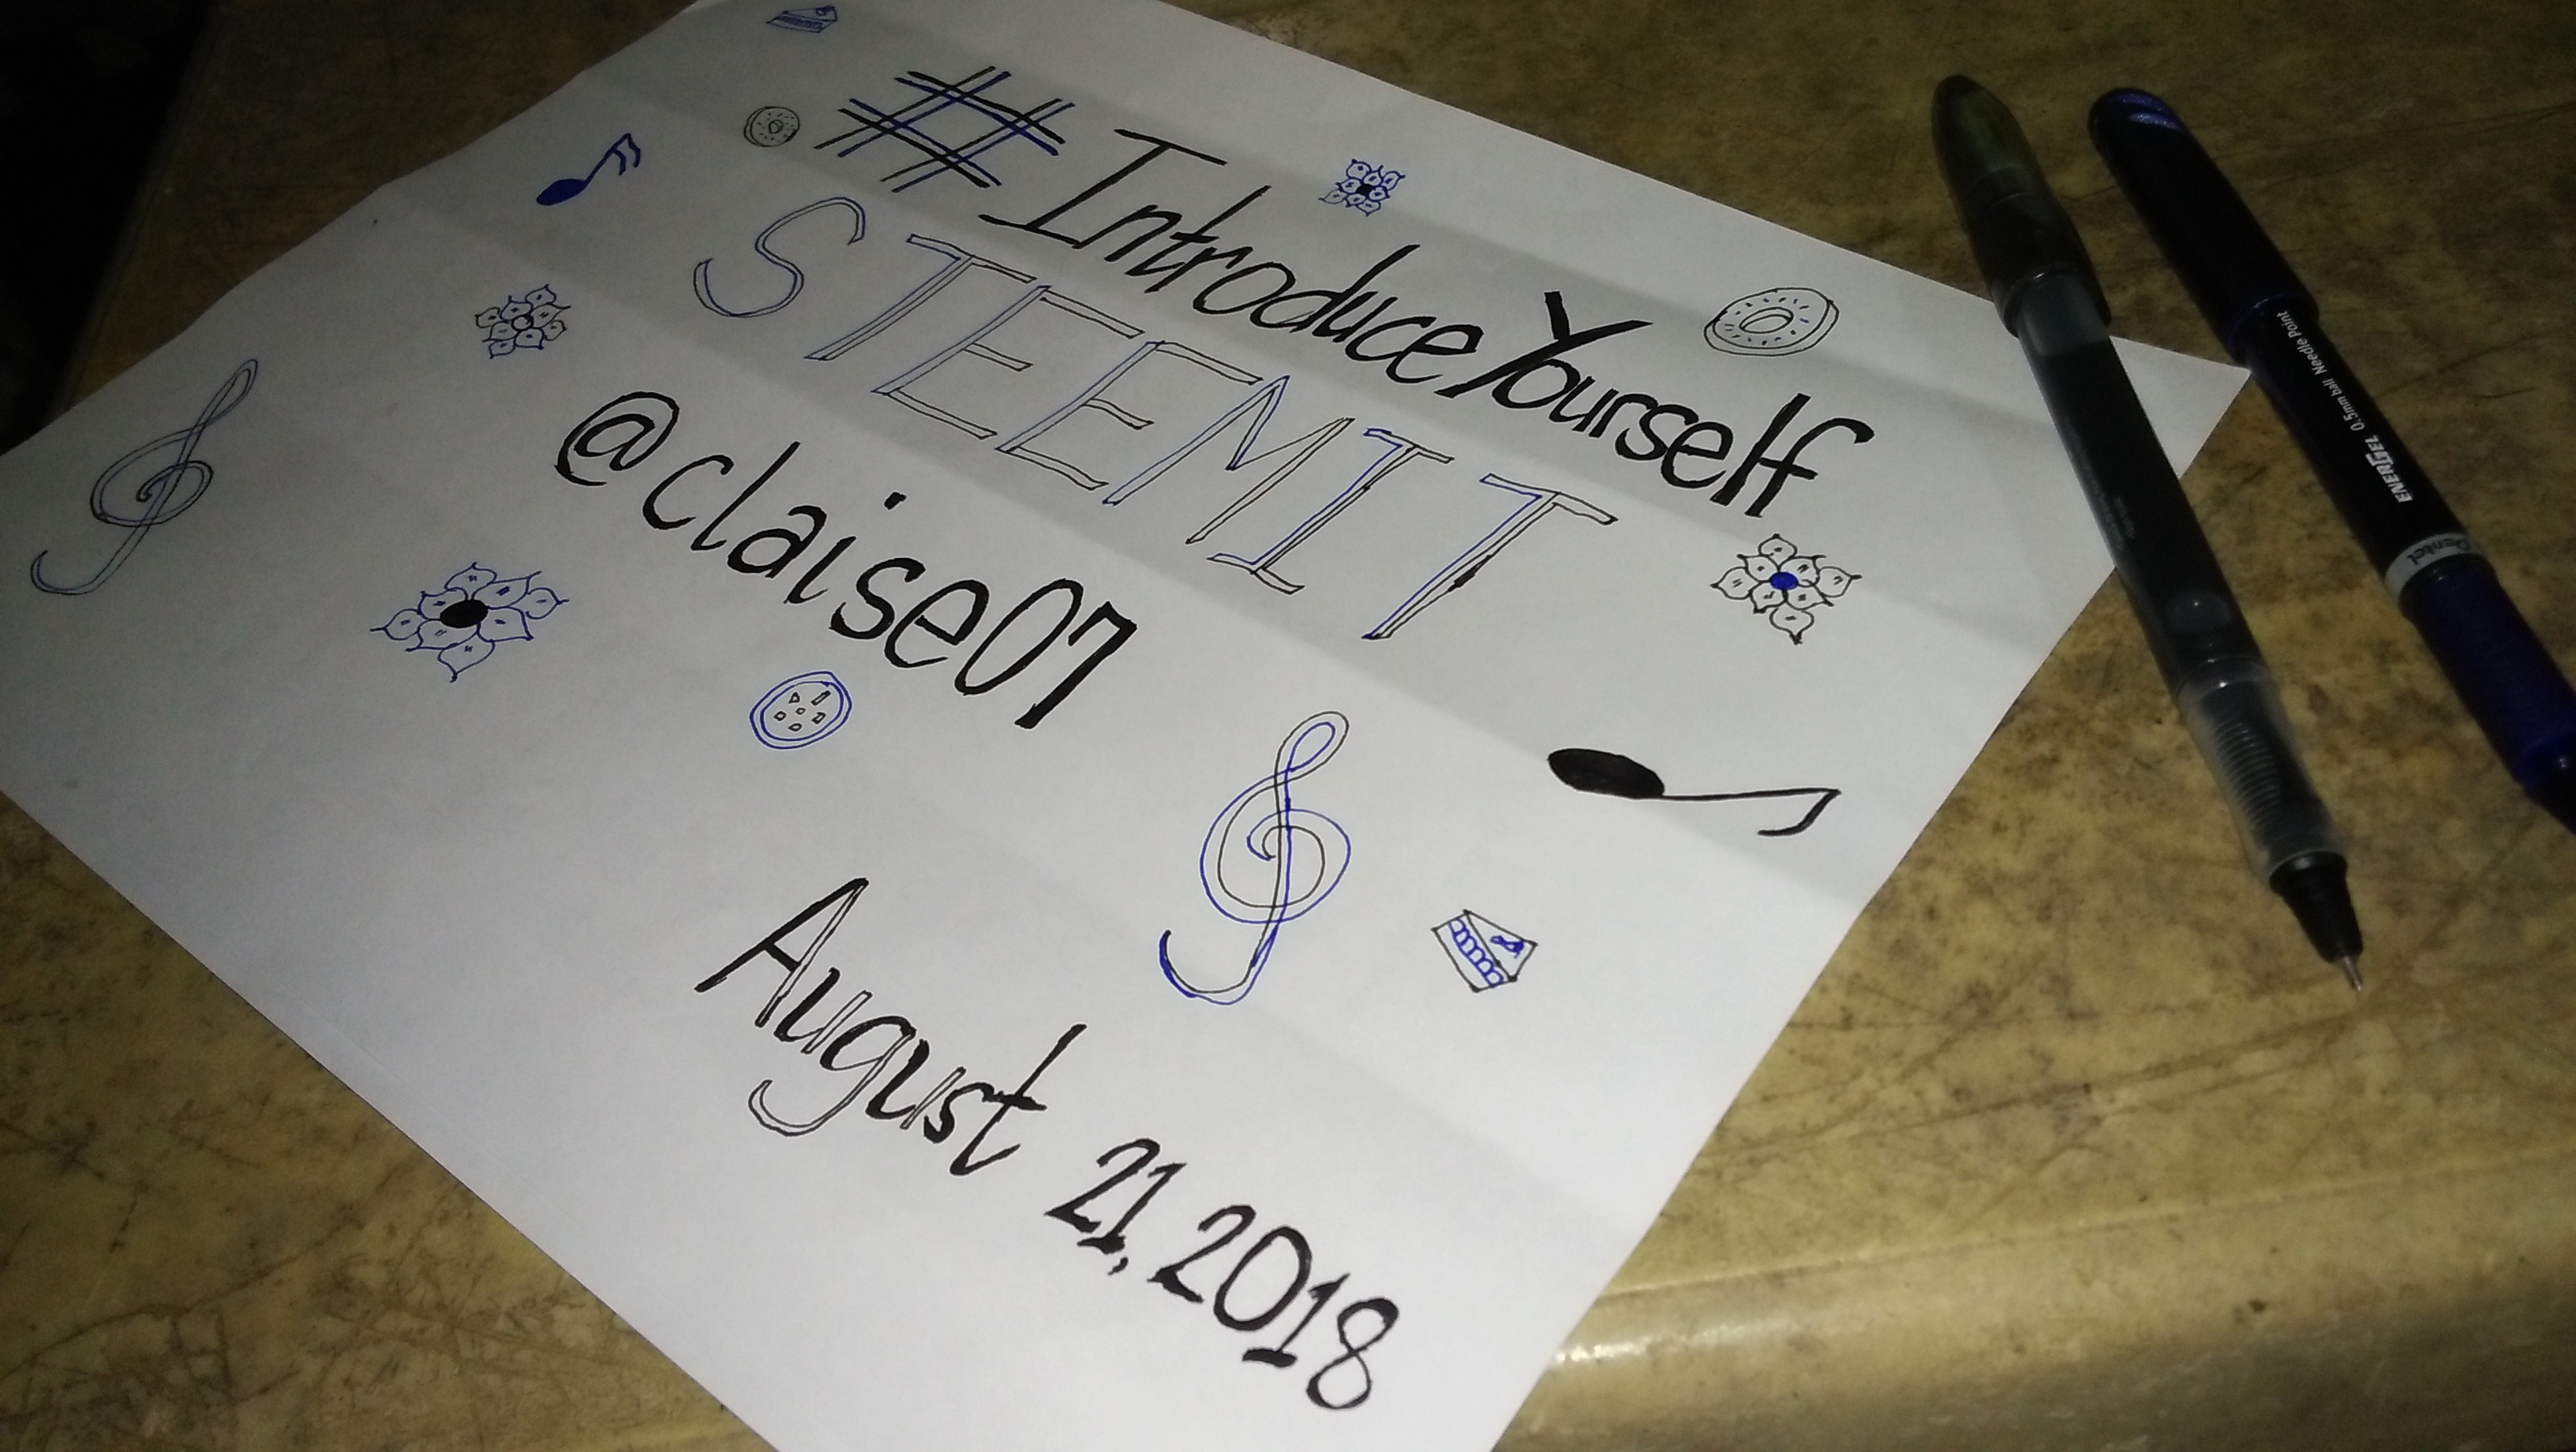 #IntroduceYourself
STEEMIT
@claise07
August 21, 2018
ENERGEL 0.5mm ball Needle Point
Pentel